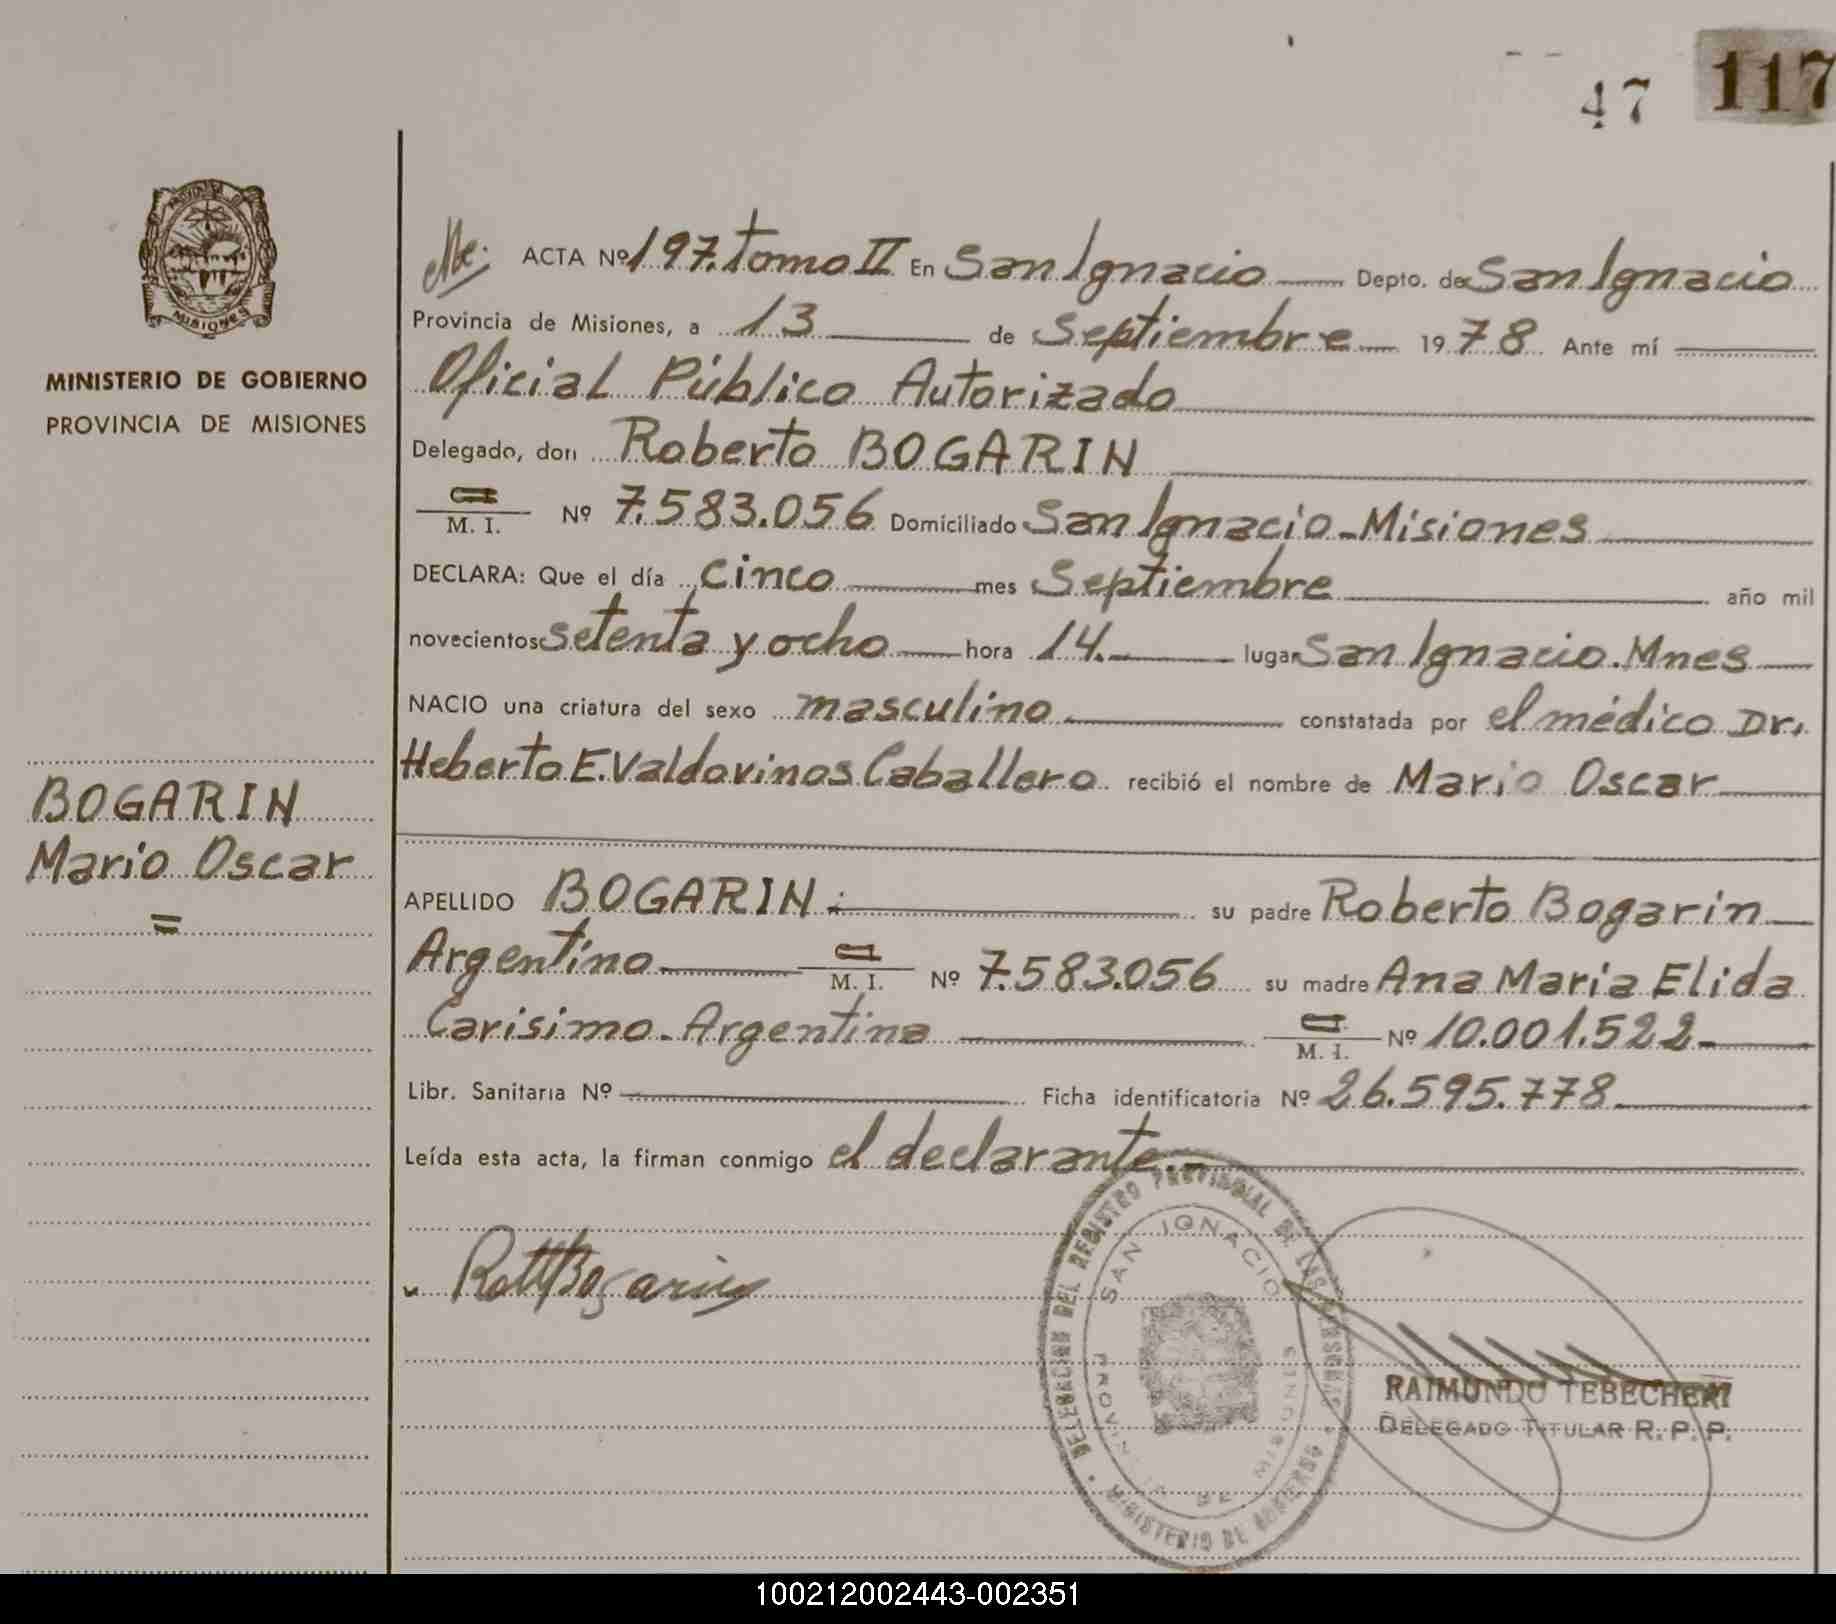 47 117
ACTA Nº 197. Tomo II En San Ignacio Depto. de San Ignacio
Provincia de Misiones, a 13 de Septiembre 1978 Ante mí
Oficial Público Autorizado
Delegado, don Roberto BOGARIN
M. I. Nº 7.583.056 Domiciliado San Ignacio-Misiones
DECLARA: Que el día cinco mes Septiembre año mil
novecientos setenta y ocho hora 14. lugar San Ignacio. Mnes
NACIO una criatura del sexo masculino constatada por el médico Dr.
Heberto E. Valdovinos Caballero recibió el nombre de Mario Oscar
APELLIDO BOGARIN.- su padre Roberto Bogarin
Argentino M. I. Nº 7.583.056 su madre Ana Maria Elida
Carisimo-Argentina M. I. Nº 10.001.522-
Libr. Sanitaria Nº Ficha identificatoria Nº 26.595.778
Leída esta acta, la firman conmigo el declarante.-
MISIONES
MINISTERIO DE GOBIERNO
PROVINCIA DE MISIONES
BOGARIN
Mario Oscar
DELEGACION DEL REGISTRO PROVINCIAL DE LAS PERSONAS
MINISTERIO DE GOBIERNO
SAN IGNACIO
PROVINCIA DE MISIONES
RAIMUNDO TEBECHERI
DELEGADO TITULAR R. P. P.
100212002443-002351